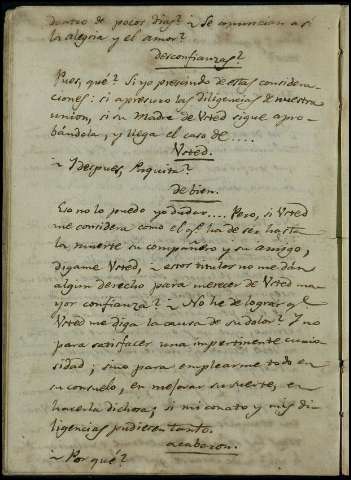 dentro de pocos dias? ~ Se anuncian asi
la alegria y el amor?
desconfianzas?
Pues, qué? Si yo prescindo de estas considera-
ciones: si apresuro las diligencias de nuestra
union, si su Madre de Vsted sigue apro-
bándola, y llega el caso de....
Vsted.
~ Y despues, Paquita?
de bien.
Eso no lo puedo yo dudar.... Pero, si Vsted
me considera como el q.e ha de ser hasta
la muerte su compañero y su amigo,
digame Vsted, ~ estos titulos no me dán
algun derecho para merecer de Vsted ma-
yor confianza? ~ No he de lograr q.e
Vsted me diga la causa de su dolor? Y no
para satisfacer una impertinente curio-
sidad; sino para emplearme todo en
su consuelo, en mejorar su suerte, en
hacerla dichosa; si mi conato y mis di-
ligencias pudiesen tanto.
acabaron.
~ Por qué?